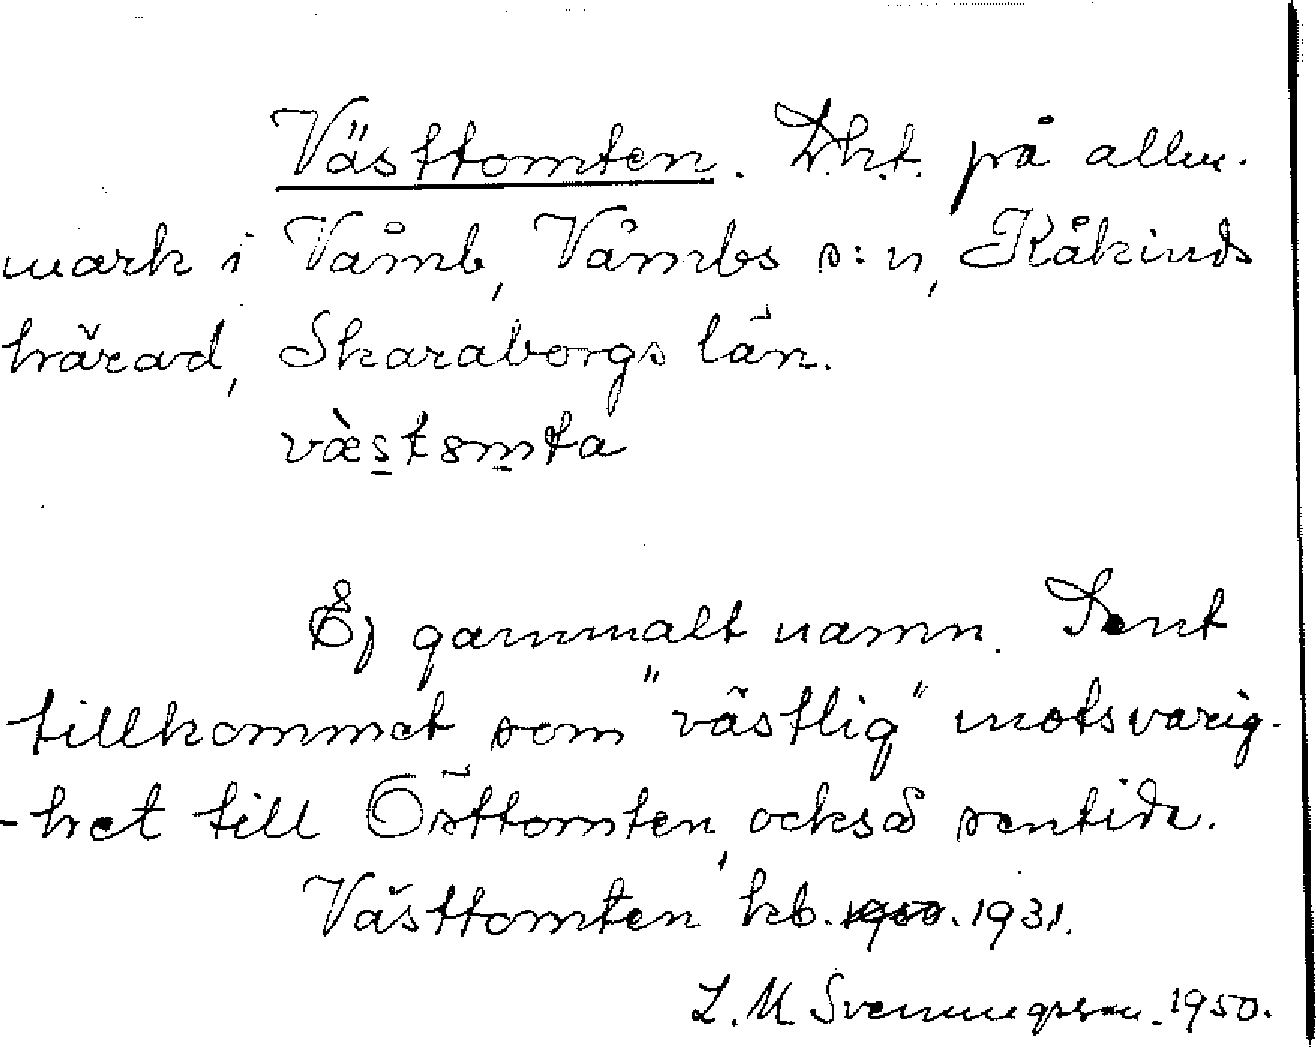 Västtomten. Lht. på allm.
mark i Våmb, Våmbs s:n, Kåkinds
härad, Skaraborgs län.
væ̀stomta
Ej gammalt namn. Sent
tillkommet som "västlig" motsvarig-
-het till Östtomten, också sentida.
Västtomten kb. 1950. 1931.
L. M Svenungsson. 1950.